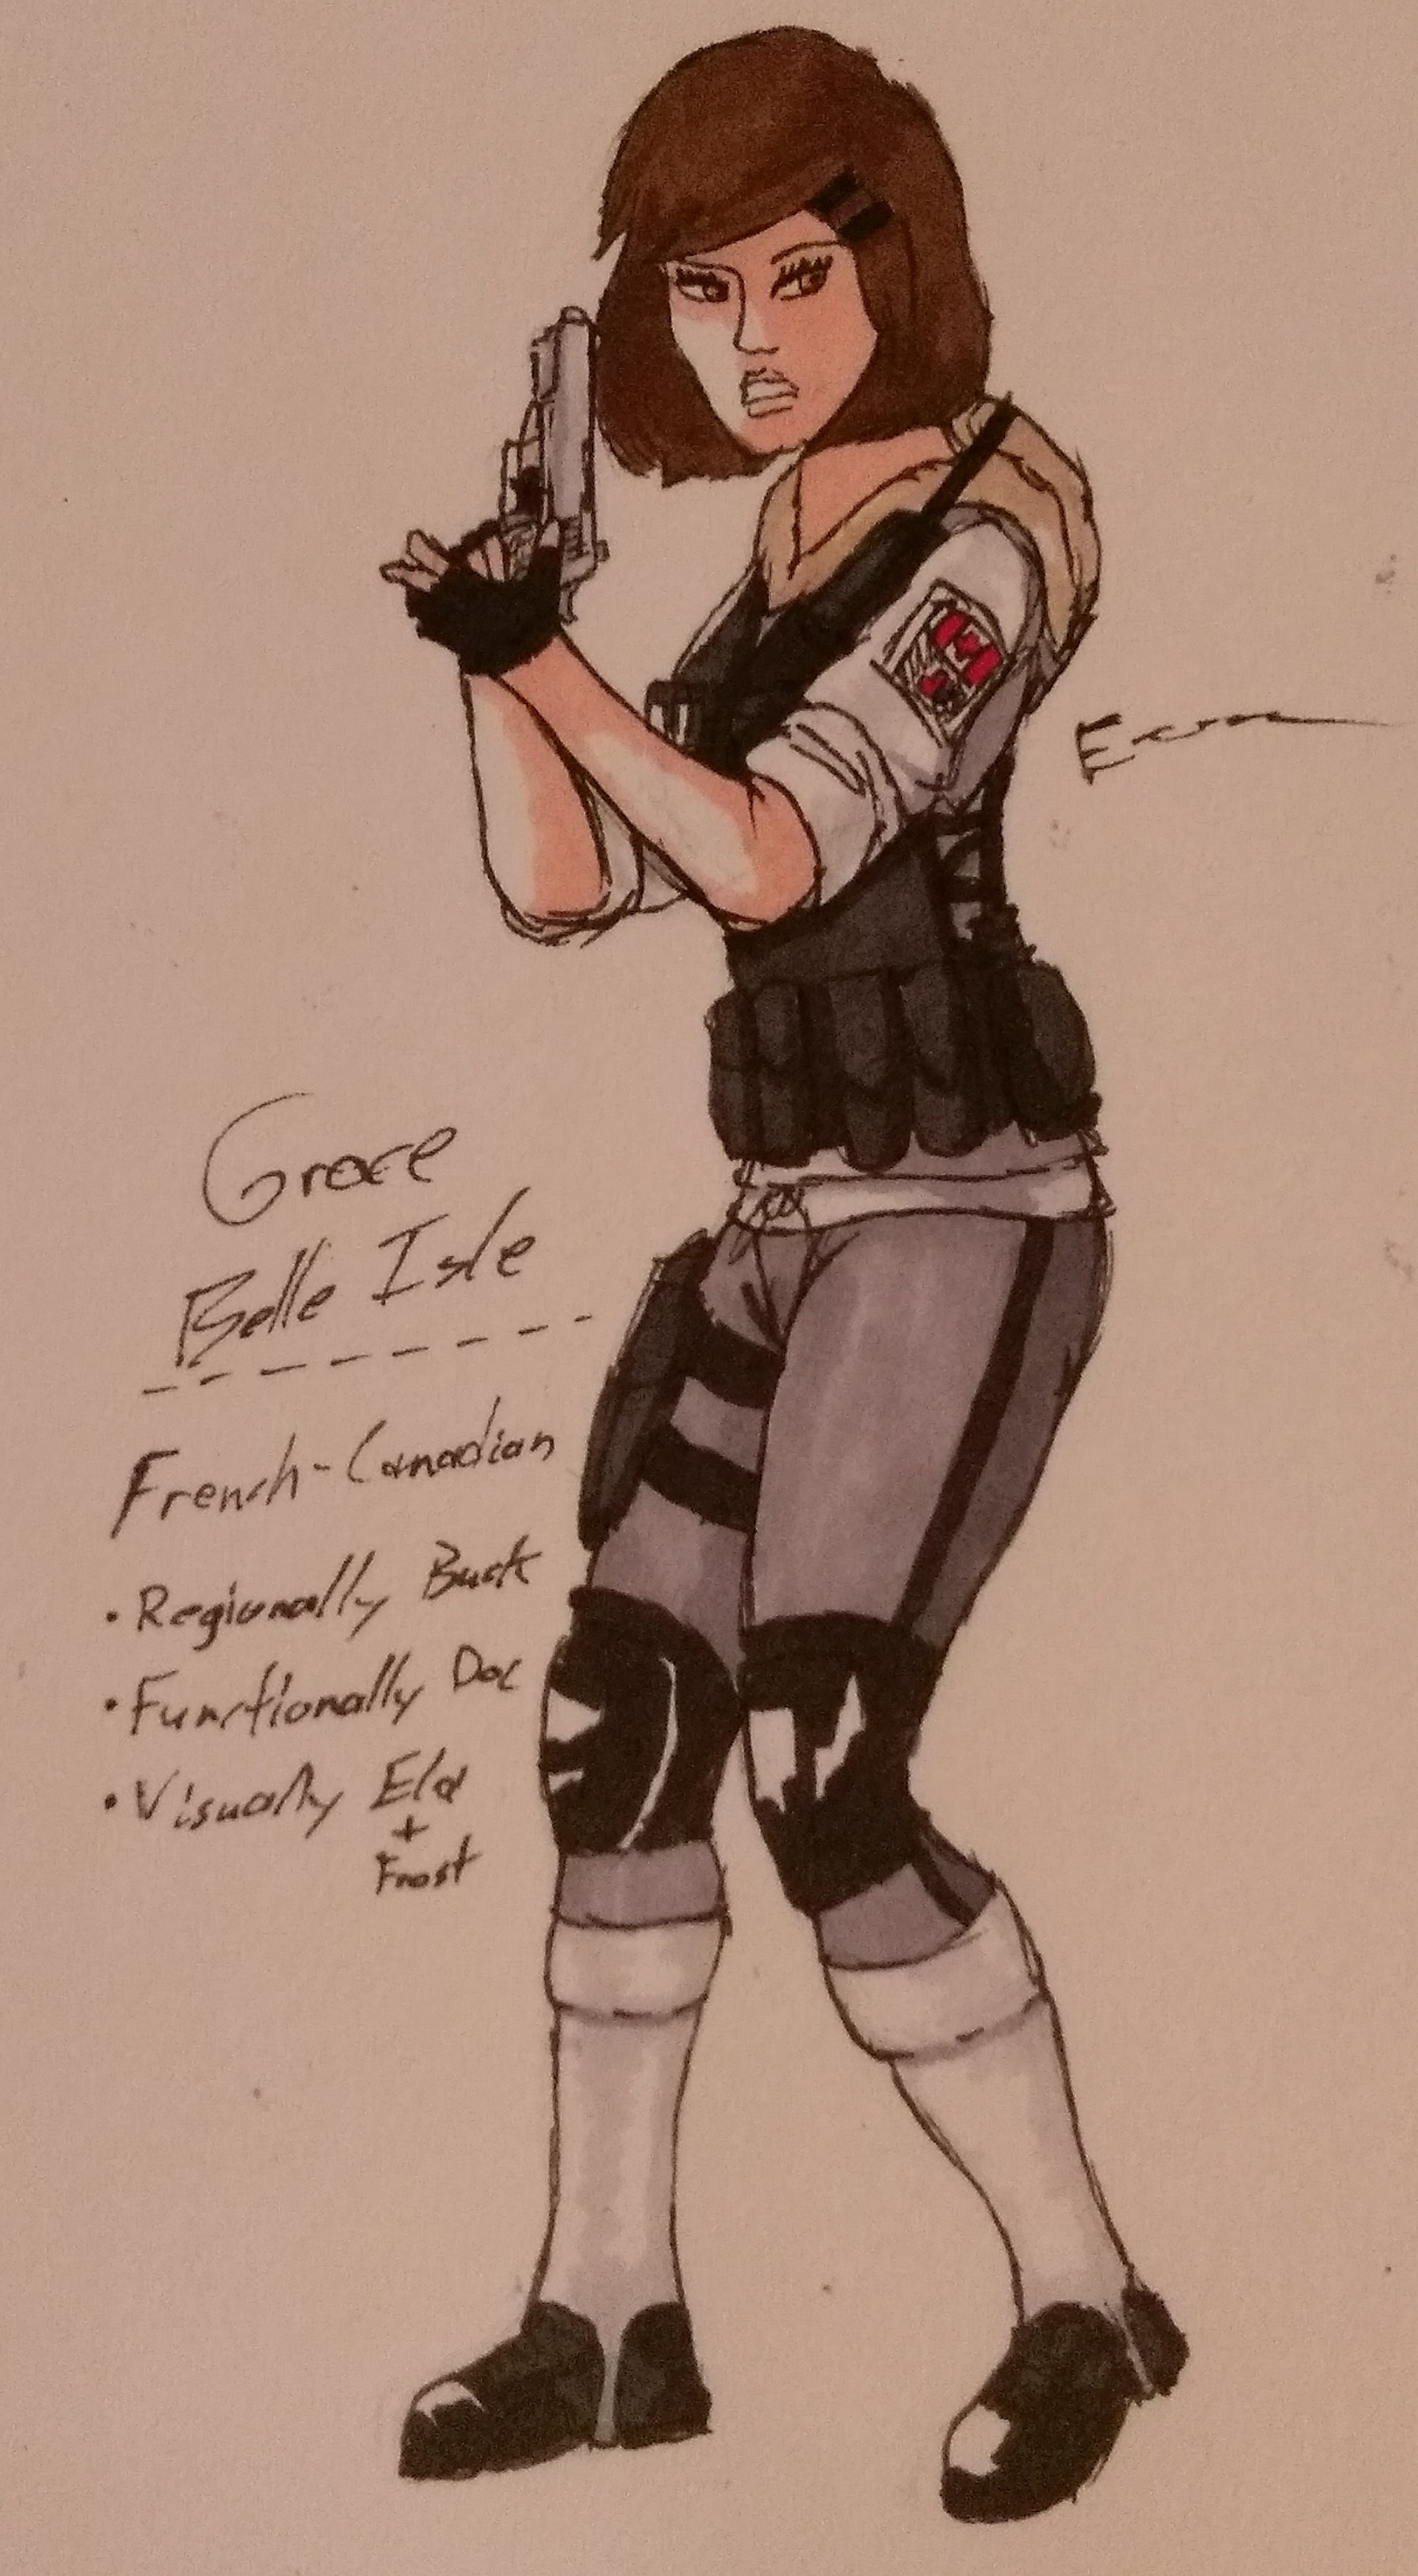 Grace
Belle Isle
French-Canadian
• Regionally Buck
• Functionally Doc
• Visually Ela
+
Frost